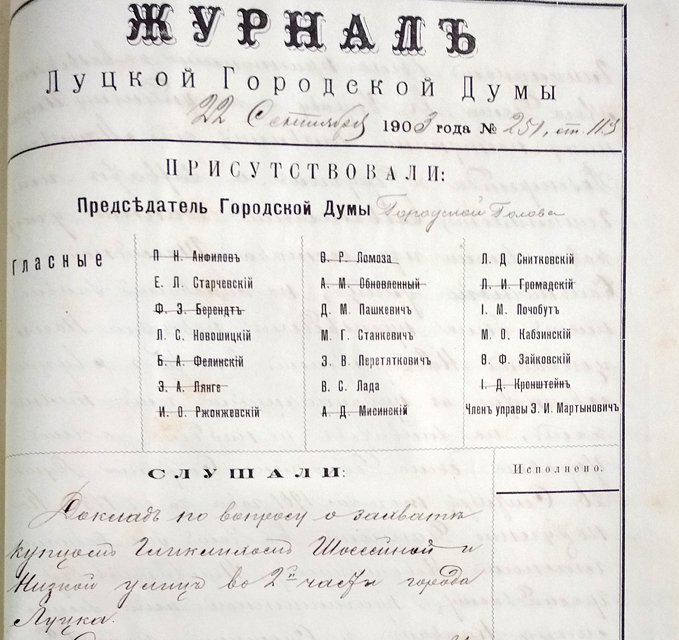 ЖУРНАЛЪ
Луцкой Городской Думы
22 Сентября 1903 года № 251, ст. 113
ПРИСУТСТВОВАЛИ:
Предсѣдатель Городской Думы Городской Голова
Гласные
П. Н. Анфиловъ
Е. Л. Старчевскій
Ф. Э. Берендтъ
Л. С. Новошицкій
Б. А. Фелинскій
Э. А. Лянге
И. О. Ржонжевскій
В. Р. Ломоза
А. М. Обновленный
Д. М. Пашкевичъ
М. Г. Станкевичъ
З. В. Перетятковичъ
В. С. Лада
А. Д. Мисинскій
Л. Д Снитковскій
Л. И. Громадскій
І. М. Почобутъ
М. О. Кабзинскій
Ѳ. Ф. Зайковскій
І. Д. Кронштейнъ
Членъ управы Э. И. Мартыновичъ
СЛУШАЛИ:
Исполнено.
Докладъ по вопросу о захватѣ
купцомъ Гликлихомъ Шоссейной и
Низкой улицъ во 2й части города
Луцка.